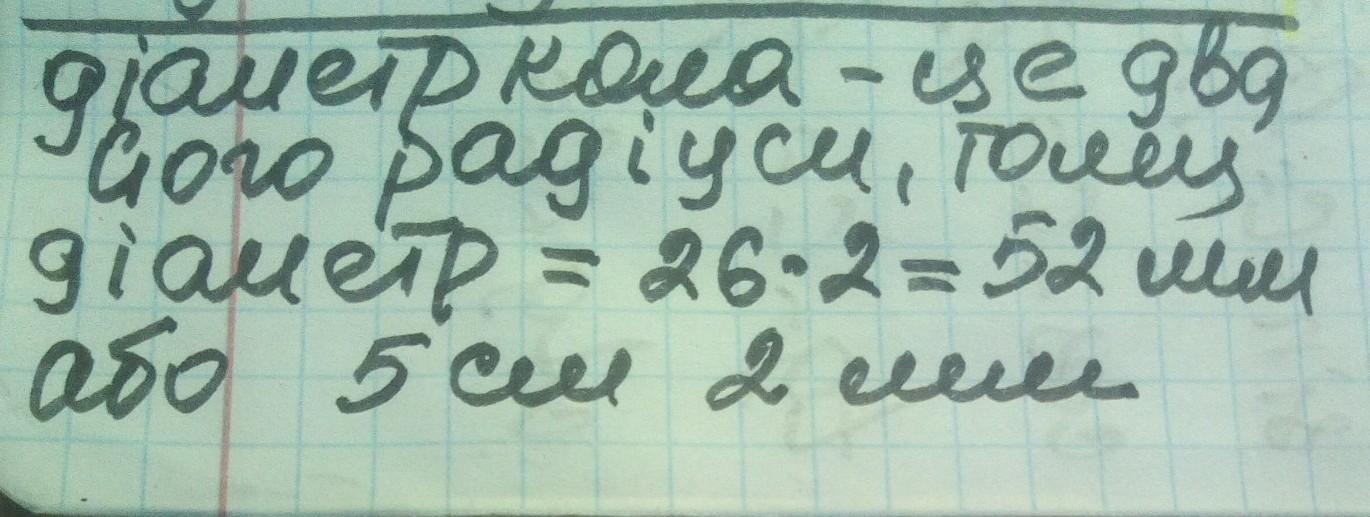 діаметр кола - це два
його радіуси, тому
діаметр = 26·2=52 мм
або 5 см 2 мм